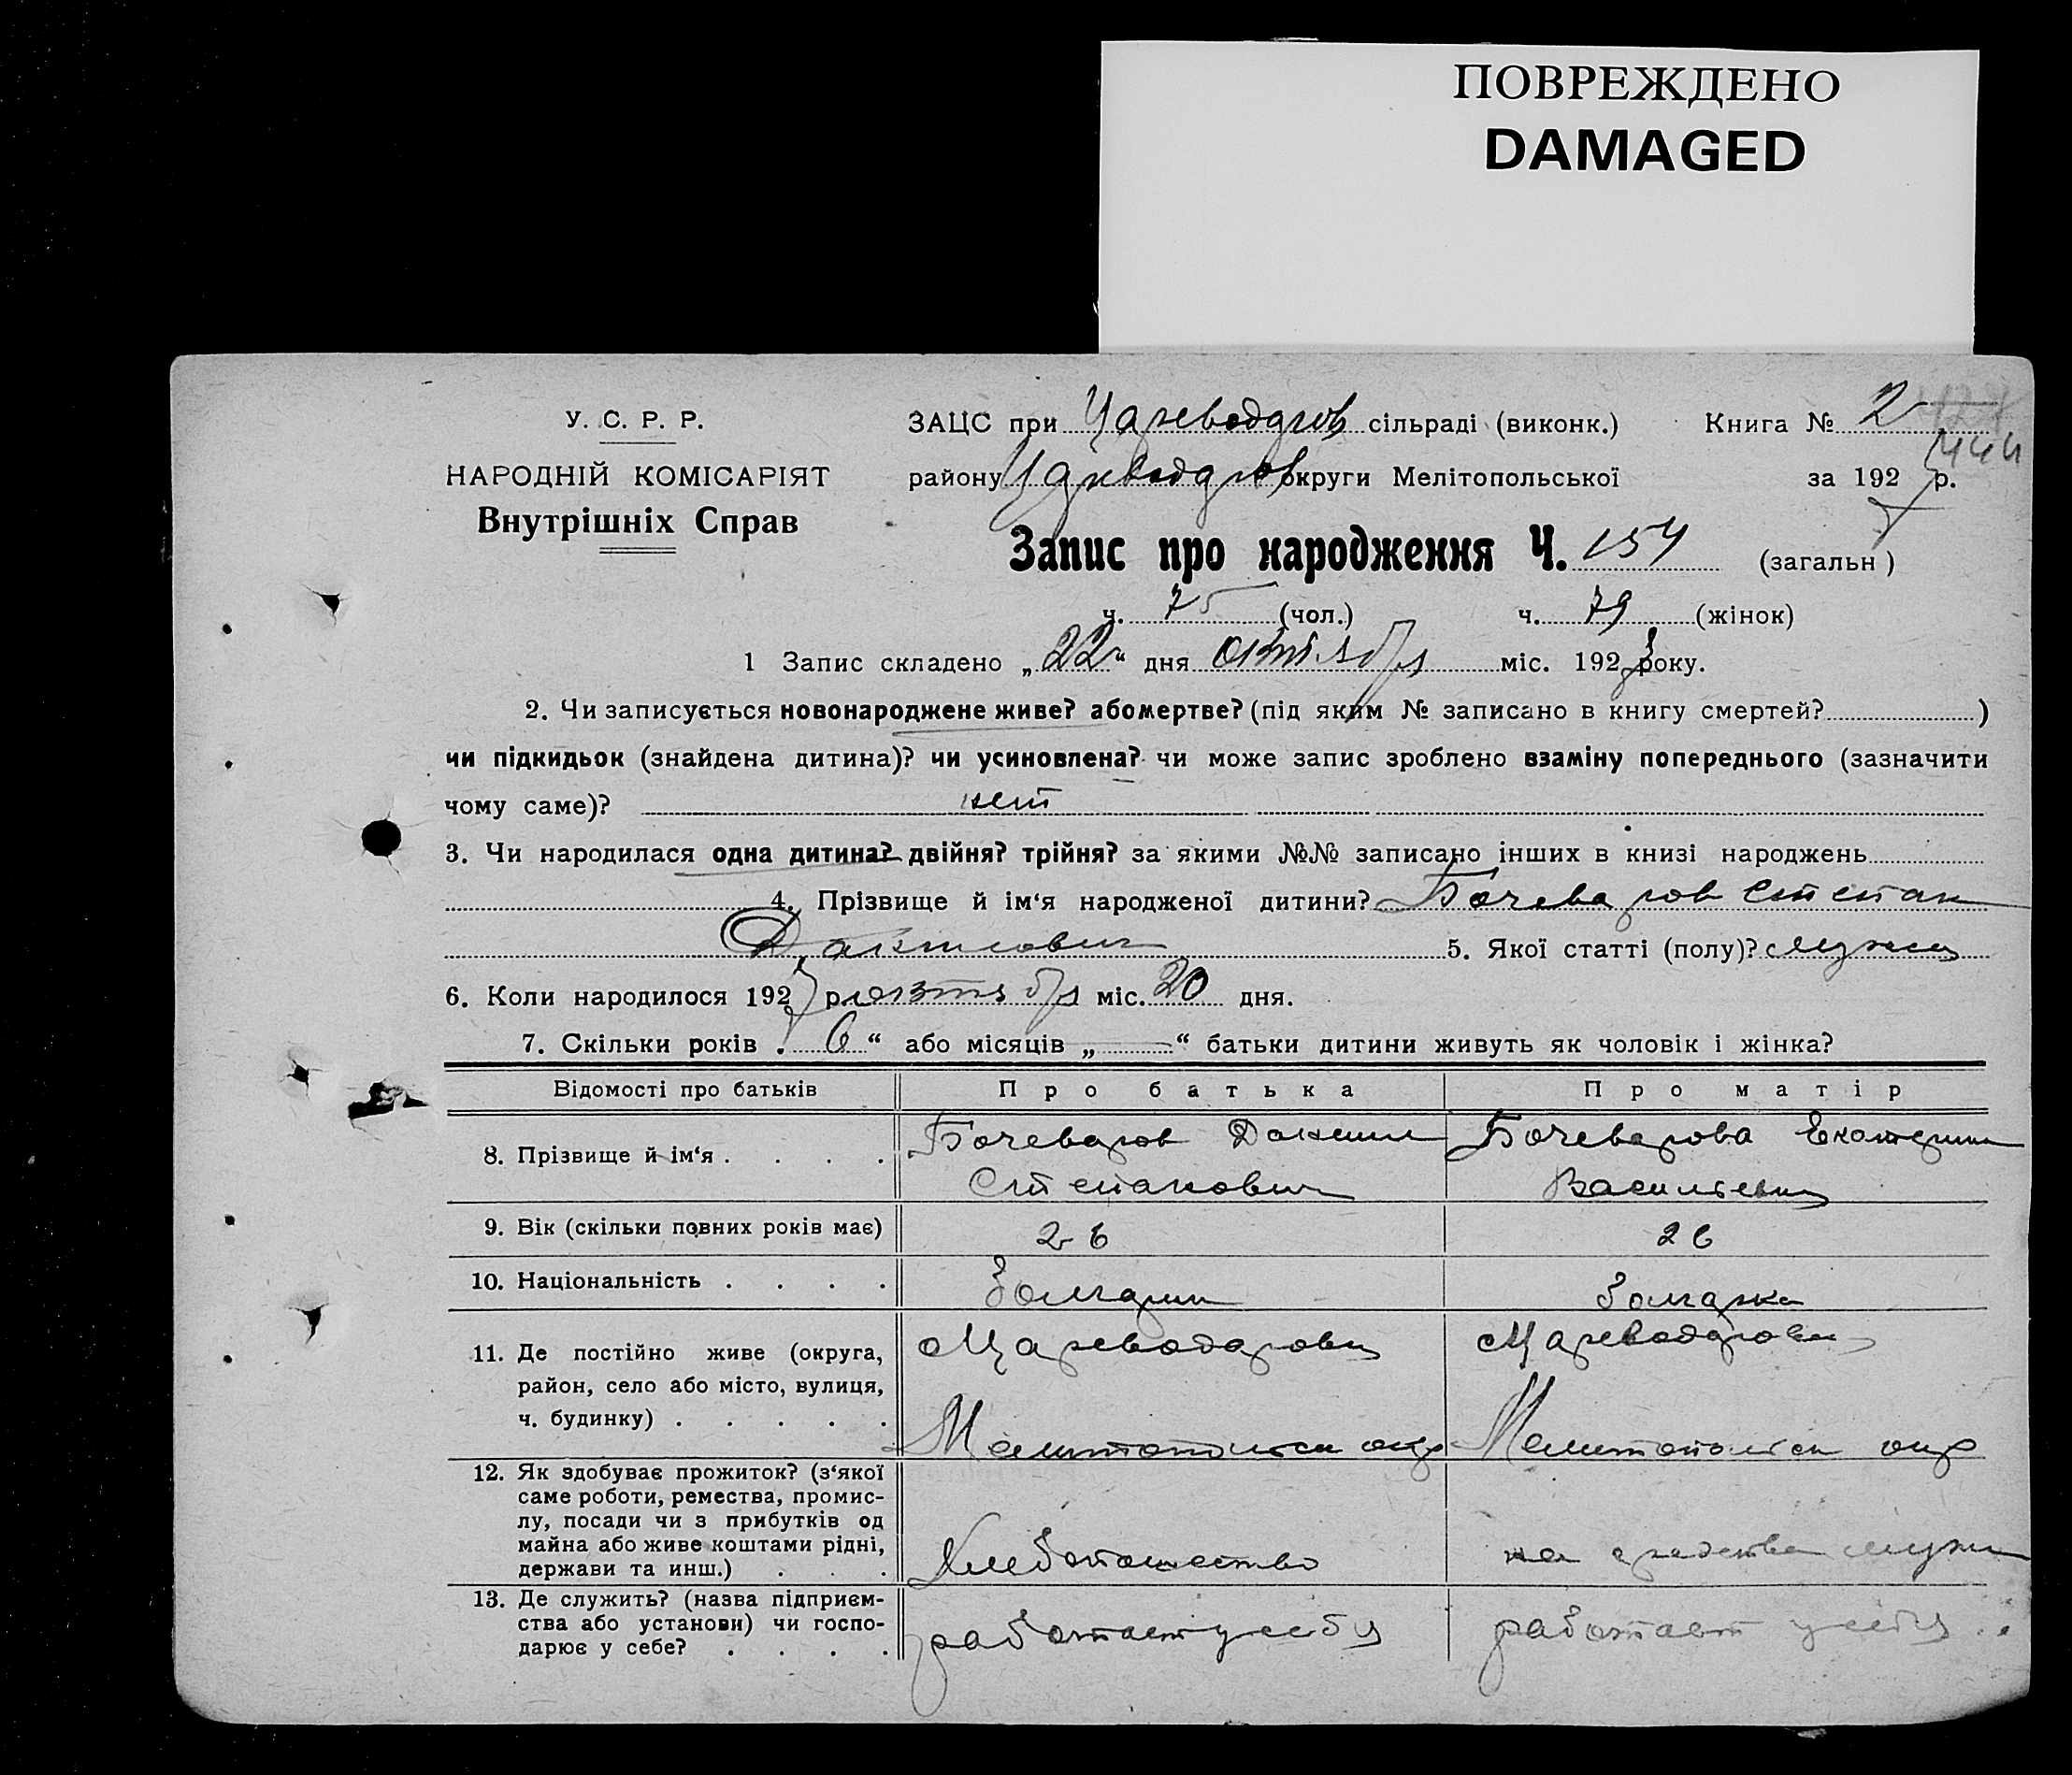 ПОВРЕЖДЕНО
DAMAGED
У. С. Р. Р.
НАРОДНІЙ КОМІСАРІЯТ
Внутрішніх Справ
ЗАЦС при Цареводаров сільраді (виконк.) Книга № 2
444
району Цареводаров округи Мелітопольської за 192 р.
Запис про народження Ч. 154 (загальн)
ч. 75 (чол.) ч. 79 (жінок)
1 Запис складено „22“ дня октября міс. 192 року.
2. Чи записується новонароджене живе? або мертве? (під яким № записано в книгу смертей? )
чи підкидьок (знайдена дитина)? чи усиновлена? чи може запис зроблено взаміну попереднього (зазначити
чому саме)? нет
3. Чи народилася одна дитина? двійня? трійня? за якими №№ записано інших в книзі народжень
4. Прізвище й ім‘я народженої дитини? Бочеваров Степан
Данилович 5. Якої статті (полу)? мужск
6. Коли народилося 192 р. октября міс. 20 дня.
7. Скільки років „6“ або місяців „—“ батьки дитини живуть як чоловік і жінка?
Відомості про батьків Про батька Про матір
8. Прізвище й ім‘я . . . . Бочеваров Данило Бочеварова Екатерина
Степанович Васильевна
9. Вік (скільки повних років має) 26 26
10. Національність . . . . болгарин болгарка
11. Де постійно живе (округа, с Цареводаровка с Цареводаровка
район, село або місто, вулиця,
ч. будинку) . . . . . Мелитопольск окр Мелитопольск окр
12. Як здобуває прожиток? (з‘якої
саме роботи, ремества, промис-
лу, посади чи з прибутків од
майна або живе коштами рідні, Хлебопашество на средства мужа
держави та инш.) . . .
13. Де служить? (назва підприєм-
ства або установи) чи госпо- работает у себя работает у себя
дарює у себе? . . . .